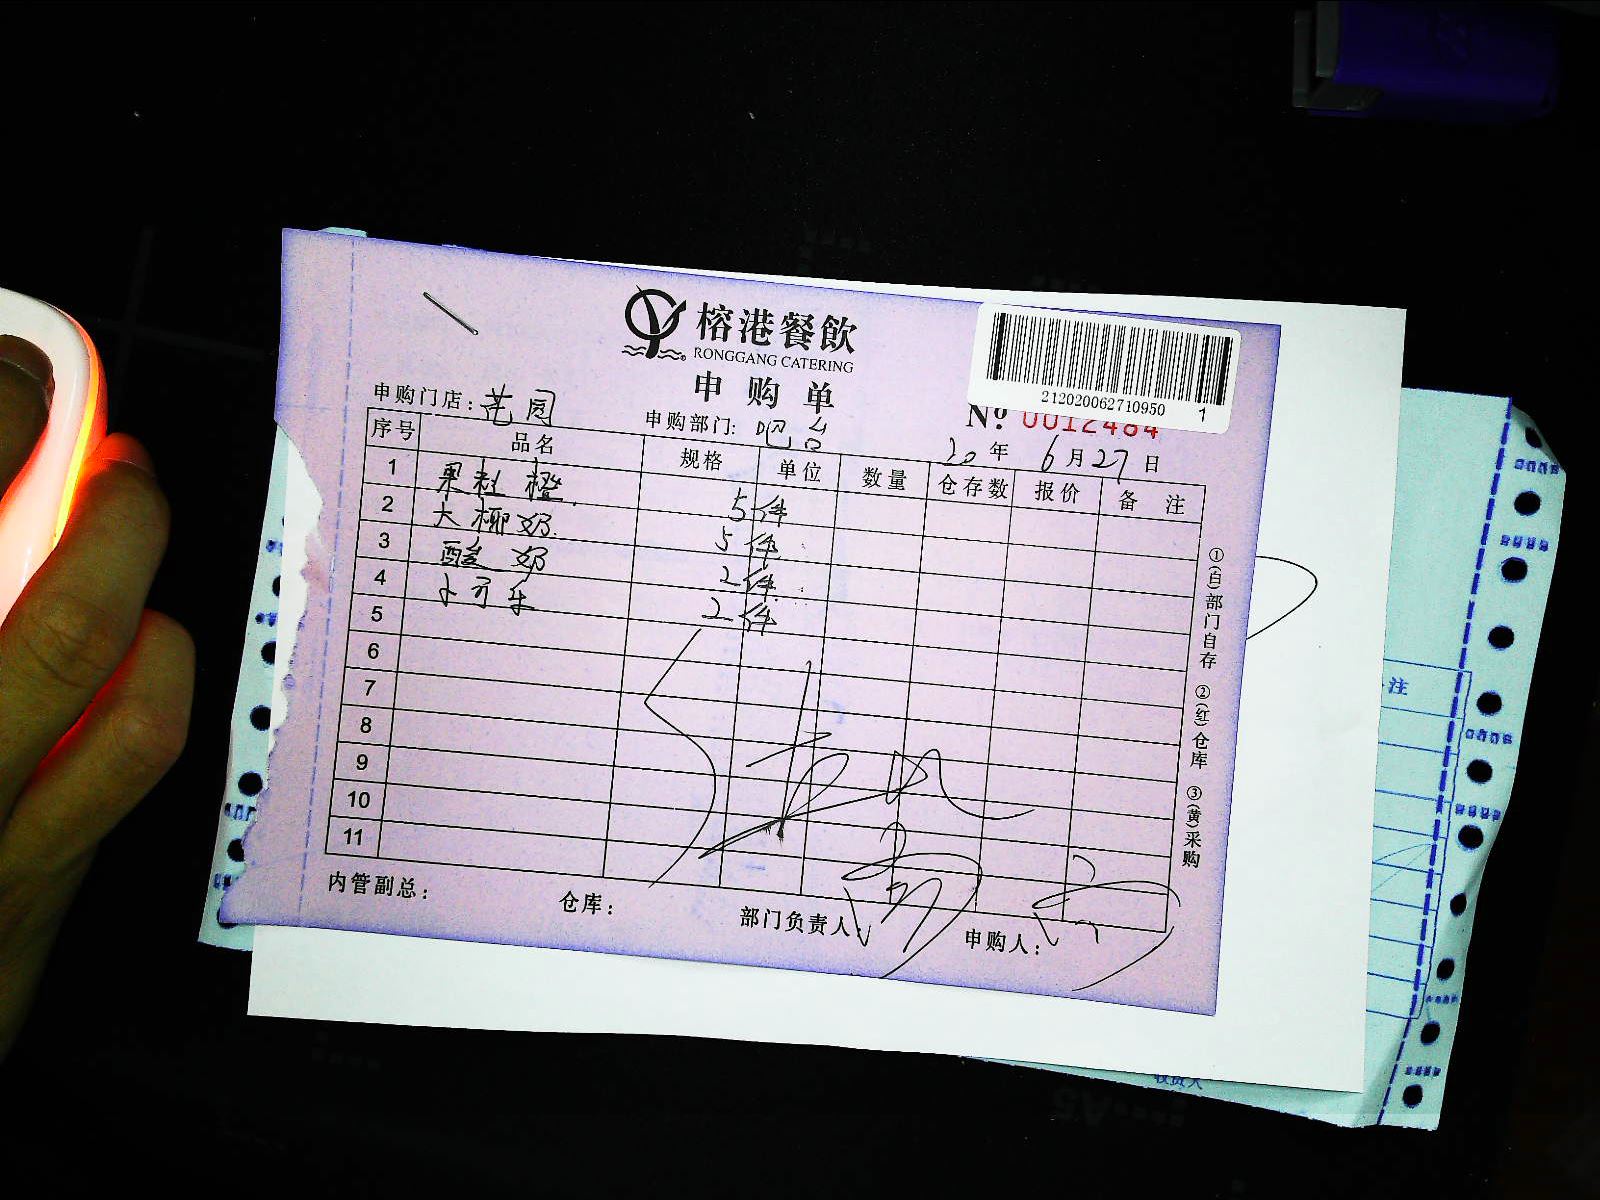 榕港餐飲
RONGGANG CATERING
申购单
212020062710950 1
申购门店：花园 申购部门：吧台 № 0012484
20年6月27日
序号 品名 规格 单位 数量 仓存数 报价 备注
1 果粒橙 5件
2 大椰奶 5件
3 酸奶 2件
4 卡可乐 2件
5
6
7
8
9
10
11
①(白)部门自存 ②(红)仓库 ③(黄)采购
内管副总： 仓库： 部门负责人： 申购人：
注
收货人